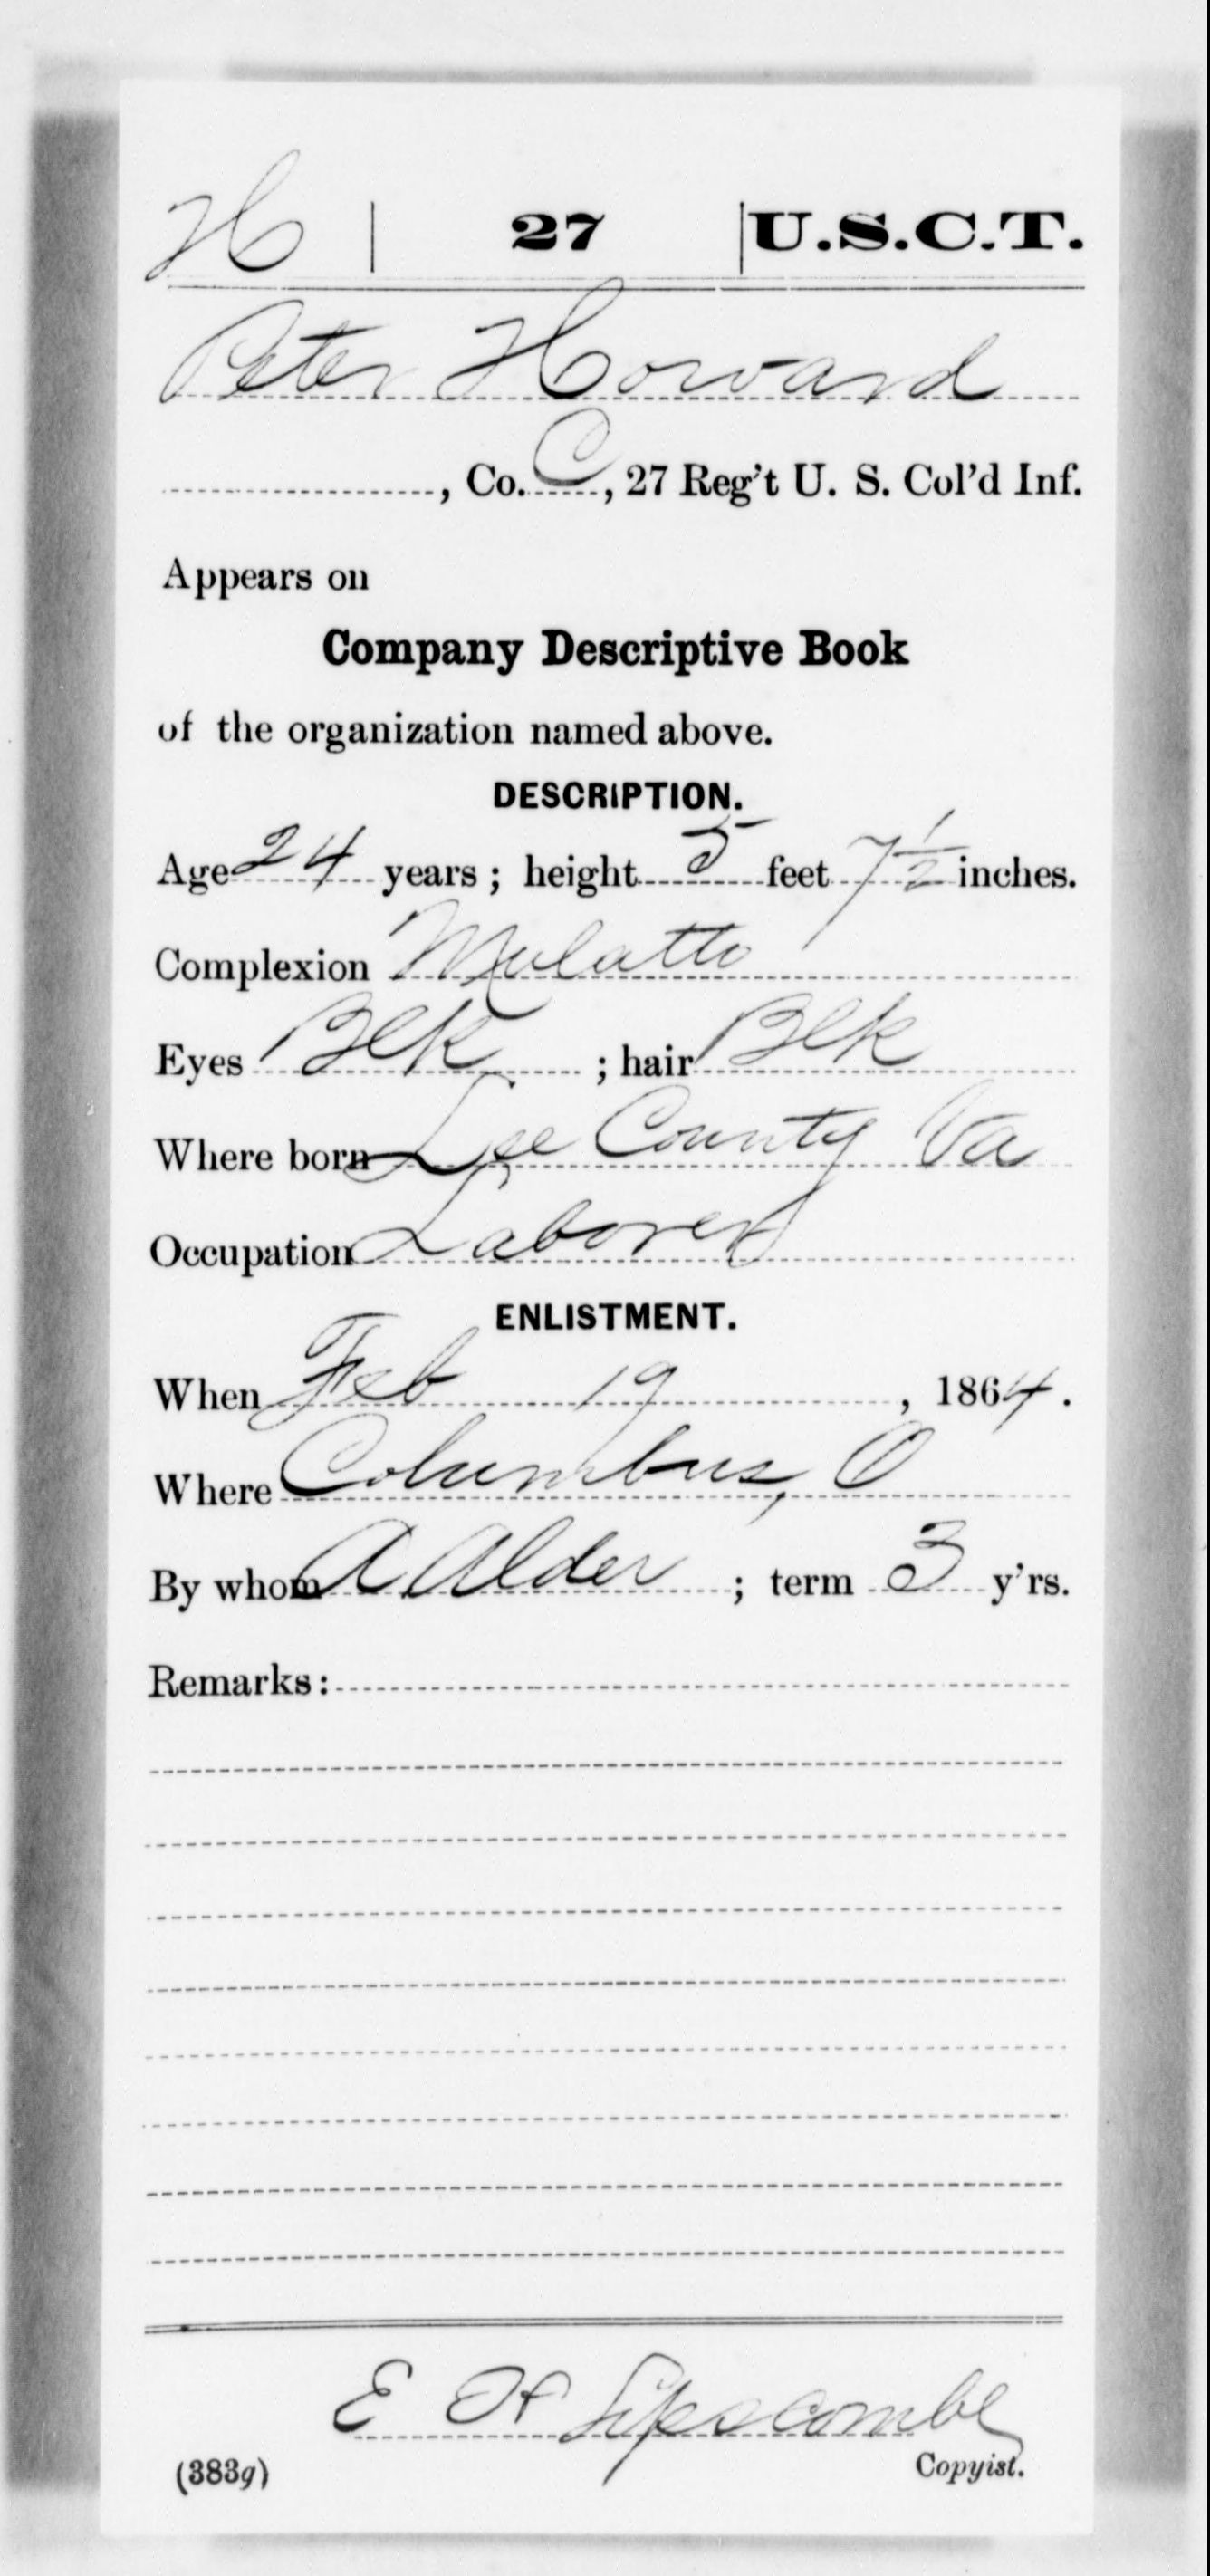 H | 27 | U.S.C.T.
Peter Howard
, Co. C, 27 Reg't U. S. Col'd Inf.
Appears on
Company Descriptive Book
of the organization named above.
DESCRIPTION.
Age 24 years; height 5 feet 7 1/2 inches.
Complexion Mulatto
Eyes Blk; hair Blk
Where born Lee County Va
Occupation Laborer
ENLISTMENT.
When Feb 19, 1864.
Where Columbus, O
By whom A Alder; term 3 y'rs.
Remarks:
E H Lipscombe
Copyist.
(383g)